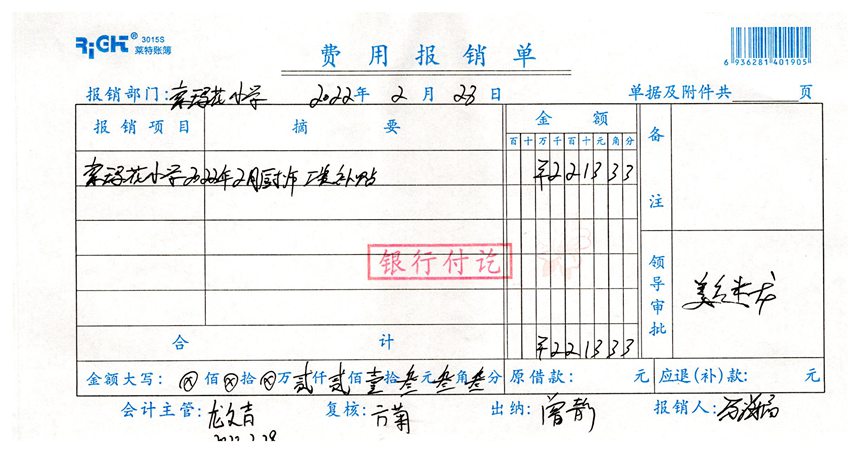 RIGHT® 3015S
莱特账簿
费用报销单
6 936281 401905
报销部门: 花小学 2022年 2月 23日 单据及附件共 页
报销项目 摘要 金额 备注
百 十 万 千 百 十 元 角 分
花小学2022年2月厨师工资补贴 ¥221333
银行付讫
领导审批
合计 ¥221333
金额大写: ⊗佰⊗拾⊗万贰仟贰佰壹拾叁元叁角叁分 原借款: 元 应退(补)款: 元
会计主管: 龙文吉 复核: 方菊 出纳: 曾静 报销人:
2022.2.28